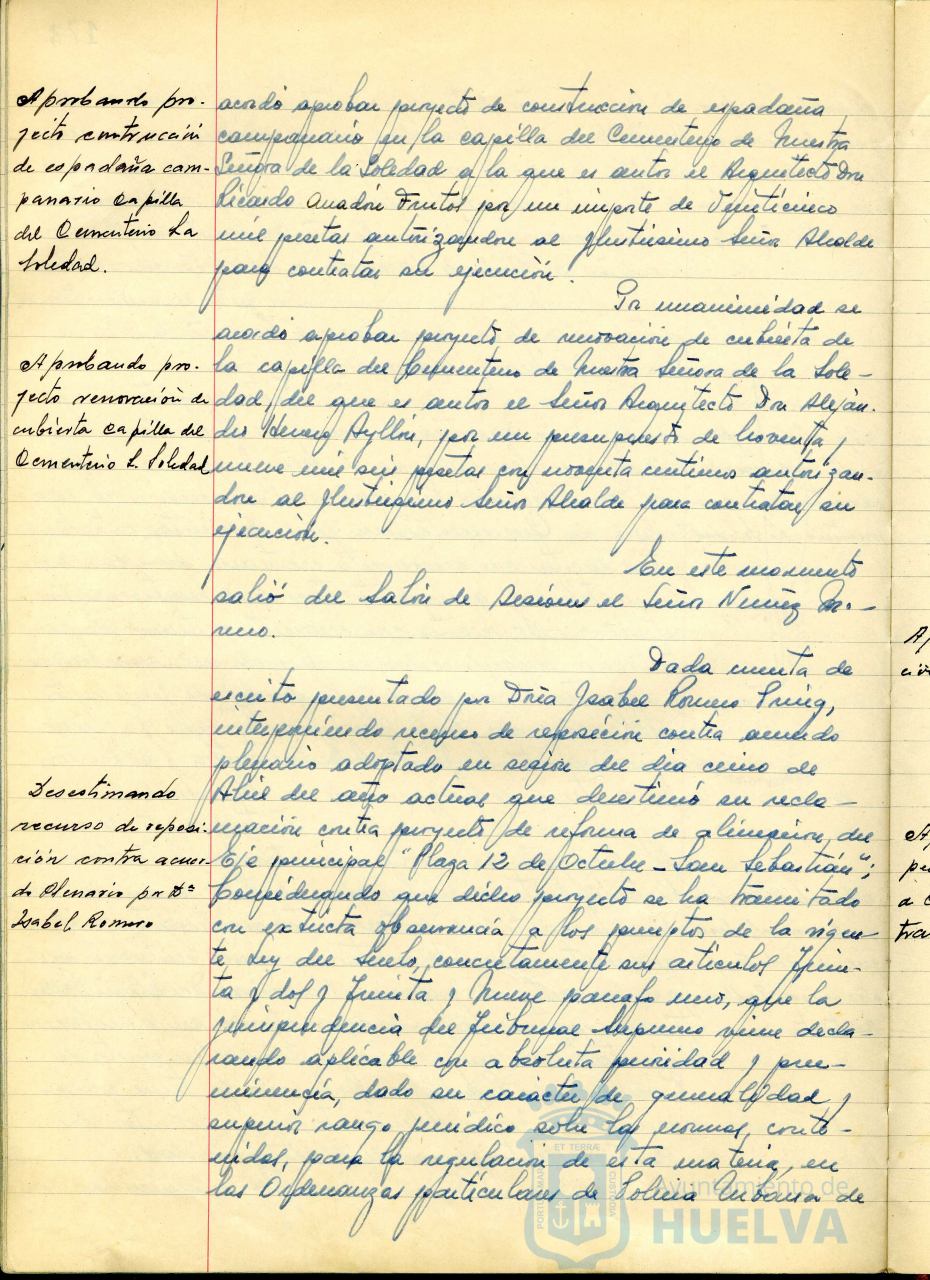 Aprobando pro-
yecto construcción
de espadaña cam-
panario capilla
del Cementerio La
Soledad.
acordó aprobar proyecto de construcción de espadaña
campanario en la capilla del Cementerio de Nuestra
Señora de la Soledad a la que es autor el Arquitecto Don
Ricardo Anadón Frutos por un importe de Veinticinco
mil pesetas autorizandose al Ilustrisimo Señor Alcalde
para contratar su ejecución.
Por unanimidad se
Aprobando pro-
yecto renovación de
cubierta capilla del
Cementerio L. Soledad
acordó aprobar proyecto de renovación de cubierta de
la capilla del Cementerio de Nuestra Señora de la Sole-
dad, del que es autor el Señor Arquitecto Don Aleján-
dro Herrero Ayllón, por un presupuesto de Noventa y
nueve mil seis pesetas con noventa centimos autorizan-
dose al Ilustrisimo Señor Alcalde para contratar su
ejecución.
En este momento
salió del Salón de Sesiones el Señor Nuñez Mo-
reno.
Dada cuenta de
escrito presentado por Doña Isabel Romero Puig,
interponiendo recurso de reposición contra acuerdo
plenario adoptado en sesión del dia cinco de
Desestimando
recurso de reposi-
ción contra acuer-
do Plenario por Dª
Isabel Romero
Abril del año actual que desestimó su recla-
mación contra proyecto de reforma de alineación del
Eje principal "Plaza 12 de Octubre - San Sebastián";
Considerando que dicho proyecto se ha tramitado
con extricta observancia a los preceptos de la vigen-
te Ley del Suelo, concretamente sus artículos Trein-
ta y dos y Treinta y Nueve parrafo uno, que la
jurisprudencia del Tribunal Supremo viene decla-
rando aplicable con absoluta prioridad y pree-
minencia, dado su carácter de generalidad y
superior rango jurídico sobre las normas, conte-
nidas, para la regulación de esta materia, en
las Ordenanzas particulares de Policia Urbana de
ET TERRÆ
PORTUS MARIS
CUSTODIA
Ayuntamiento de
HUELVA